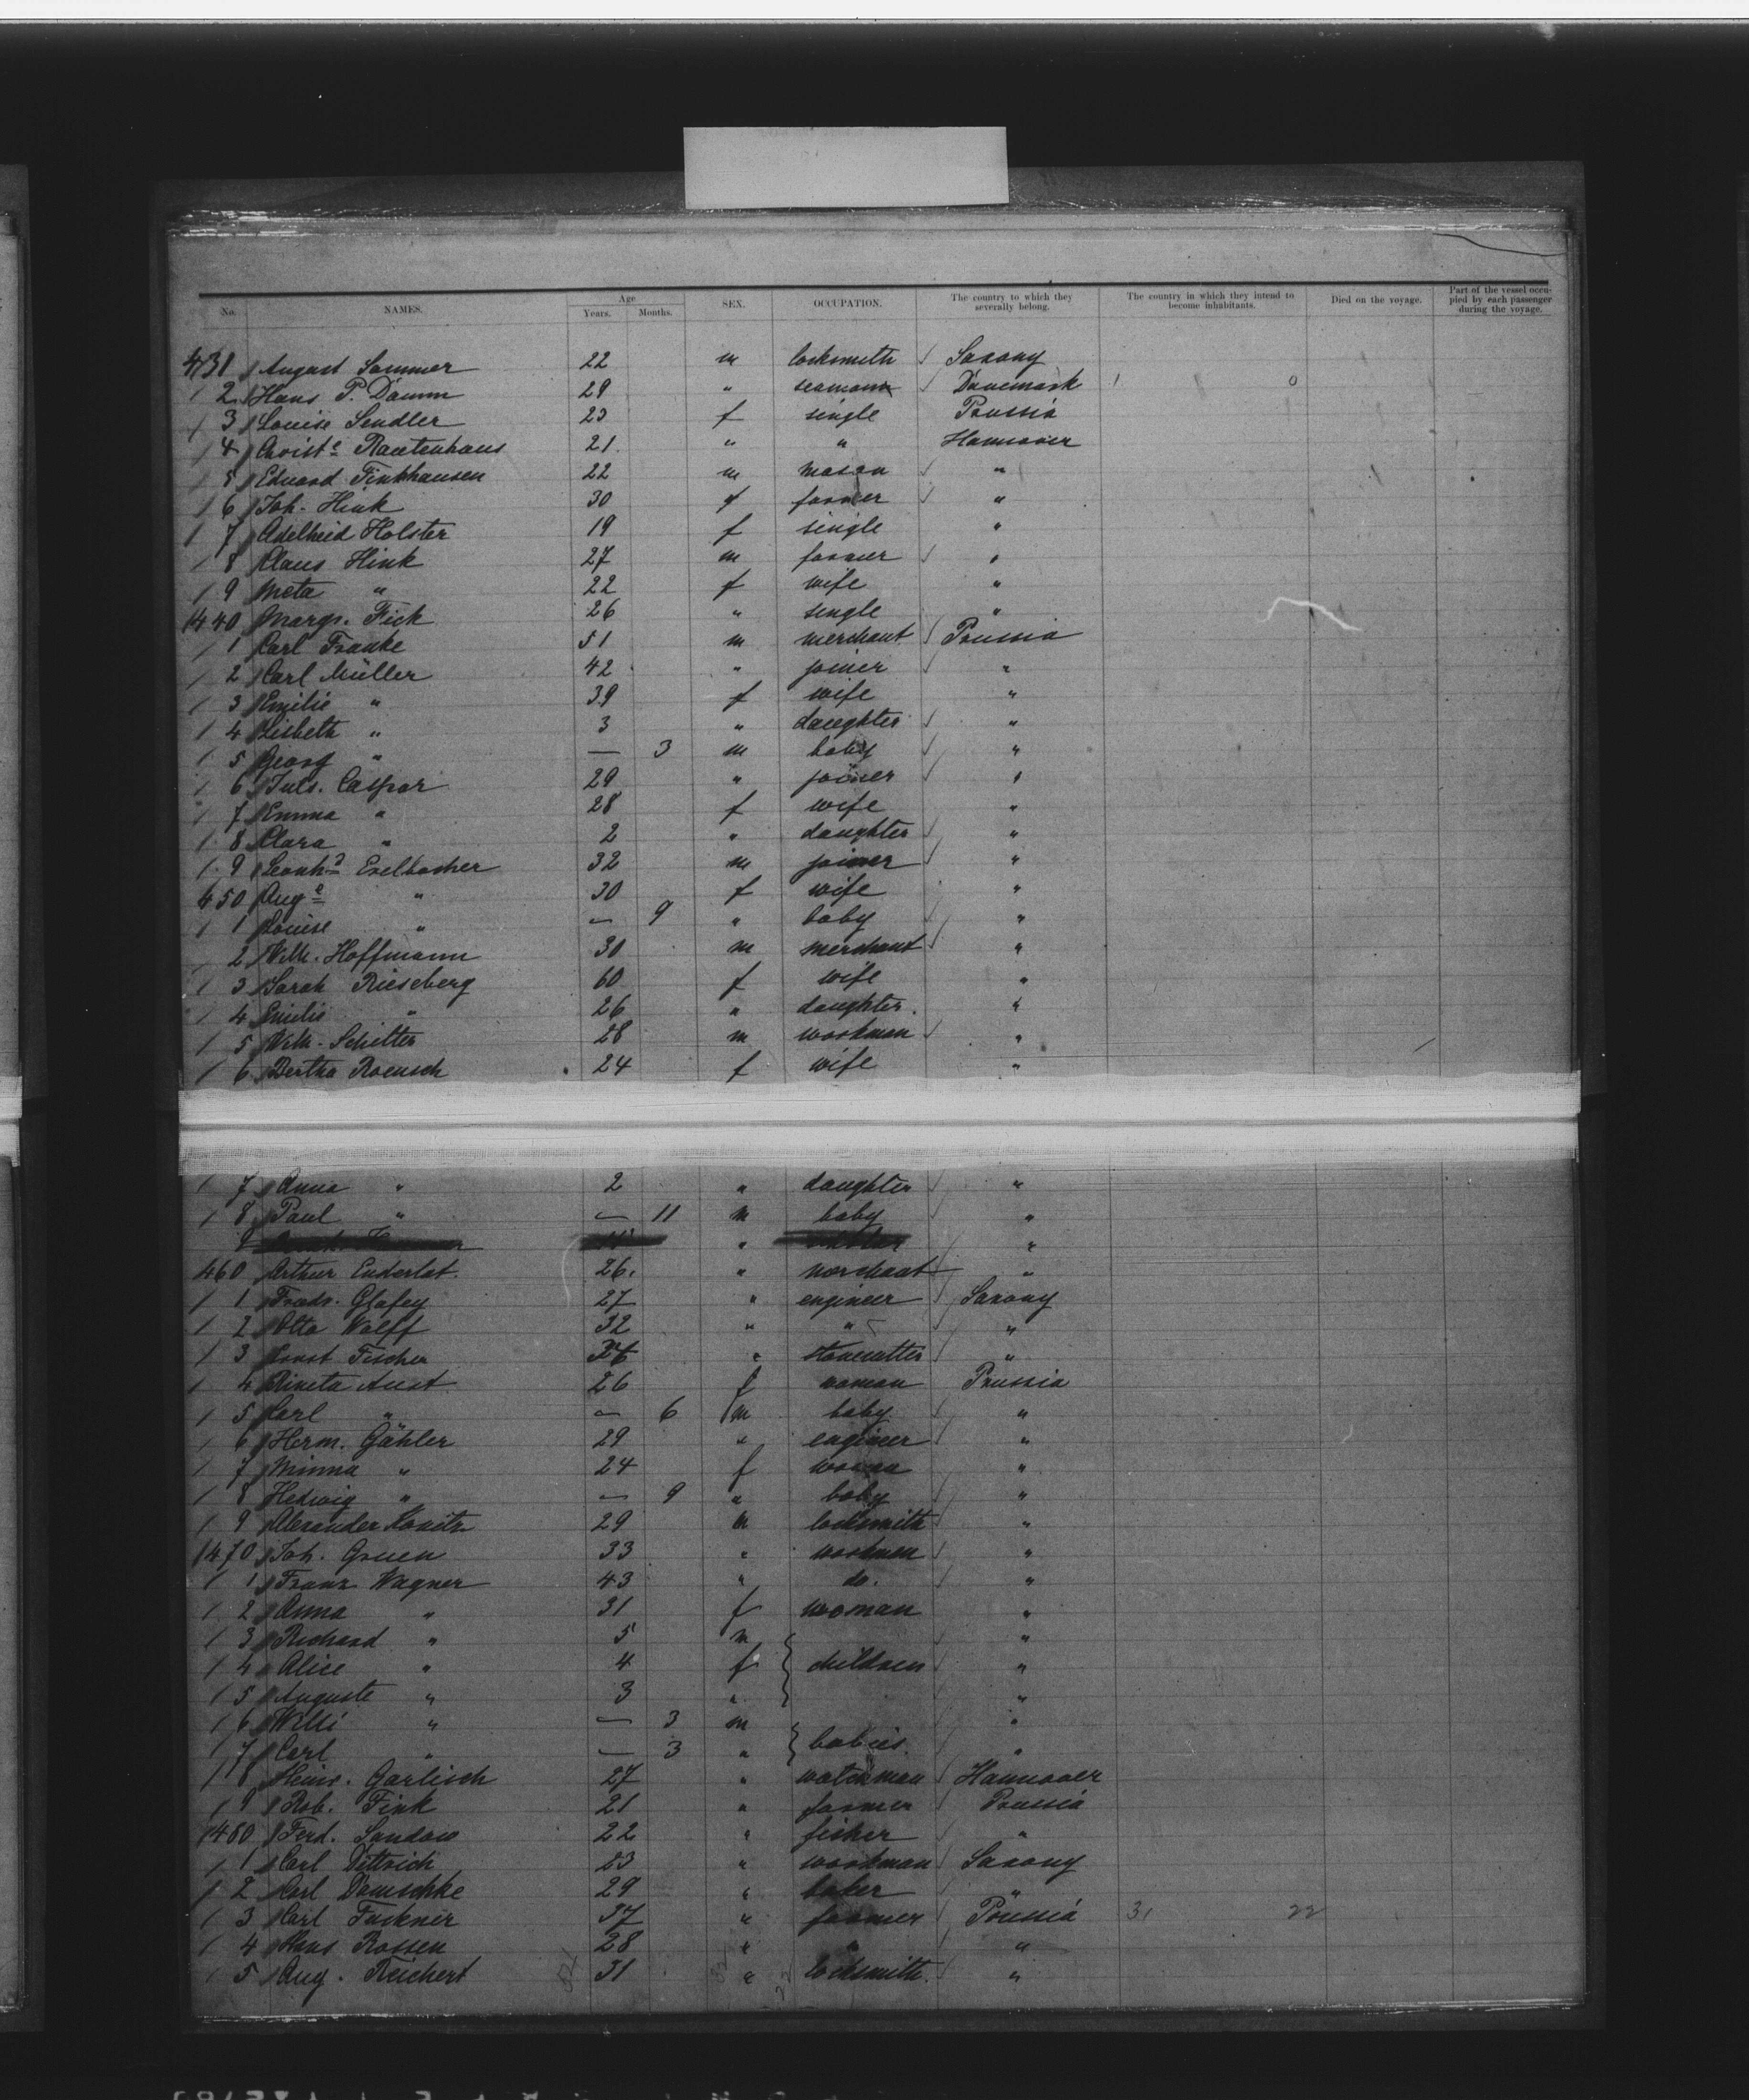 No. NAMES. Age Years. Months. SEX. OCCUPATION. The country to which they severally belong. The country in which they intend to become inhabitants. Died on the voyage. Part of the vessel occupied by each passenger during the voyage.
431 August Sommer 22 m locksmith Saxony
2 Hans P. Damm 29 " seaman Danemark 1 0
3 Louise Sendler 23 f single Prussia
4 Christe Rautenhaus 21 " " Hannover
5 Eduard Finkhausen 22 m mason "
6 Joh. Hink 30 farmer "
7 Adelheid Holster 19 f single "
8 Claus Hink 27 m farmer "
9 Meta " 22 f wife "
440 Margr. Fick 26 " single "
1 Carl Franke 51 m merchant Prussia
2 Carl Müller 42 " joiner "
3 Emilie " 39 f wife "
4 Lisbeth " 3 " daughter "
5 Georg " — 3 m baby "
6 Juls. Caspar 29 " joiner "
7 Emma " 28 f wife "
8 Clara " 2 " daughter "
9 Leonhd Eselbacher 32 m joiner "
450 Auge " 30 f wife "
1 Louise " — 9 " baby "
2 Wilh. Hoffmann 30 m merchant "
3 Sarah Rieseberg 60 f wife "
4 Emilie " 26 " daughter "
5 Wilh. Schitter 28 m workman "
6 Bertha Roensch 24 f wife "
7 Anna " 2 " daughter "
8 Paul " — 11 m baby "
9 " "
460 Arthur Enderlat 26 " merchant "
1 Fredr. Glafey 27 " engineer Saxony
2 Otto Wolff 32 " " "
3 Ernst Fischer " stonecutter "
4 Aust 26 f woman Prussia
5 Carl " — 6 m baby "
6 Herm. Gähler 29 " engineer "
7 Minna " 24 f woman "
8 Hedwig " — 9 " baby "
9 Alexander Konitz 29 m locksmith "
470 Joh. Gruen 33 " workman "
1 Franz Wagner 43 " do. "
2 Anna " 31 f woman "
3 Richard " 5 m "
4 Alice " 4 f children "
5 Auguste " 3 " "
6 Willi " — 3 m "
7 Carl " — 3 " babies "
8 Heinr. Garlisch 27 " watchman Hannover
9 Rob. Fink 21 " farmer Prussia
480 Ferd. Sandow 22 " fisher "
1 Carl Dittrich 23 " workman Saxony
2 Carl Damschke 29 " baker "
3 Carl Fuckner 37 " farmer Prussia 31 22
4 Hans Rossen 28 " " "
5 Aug. Reichert 31 " locksmith "